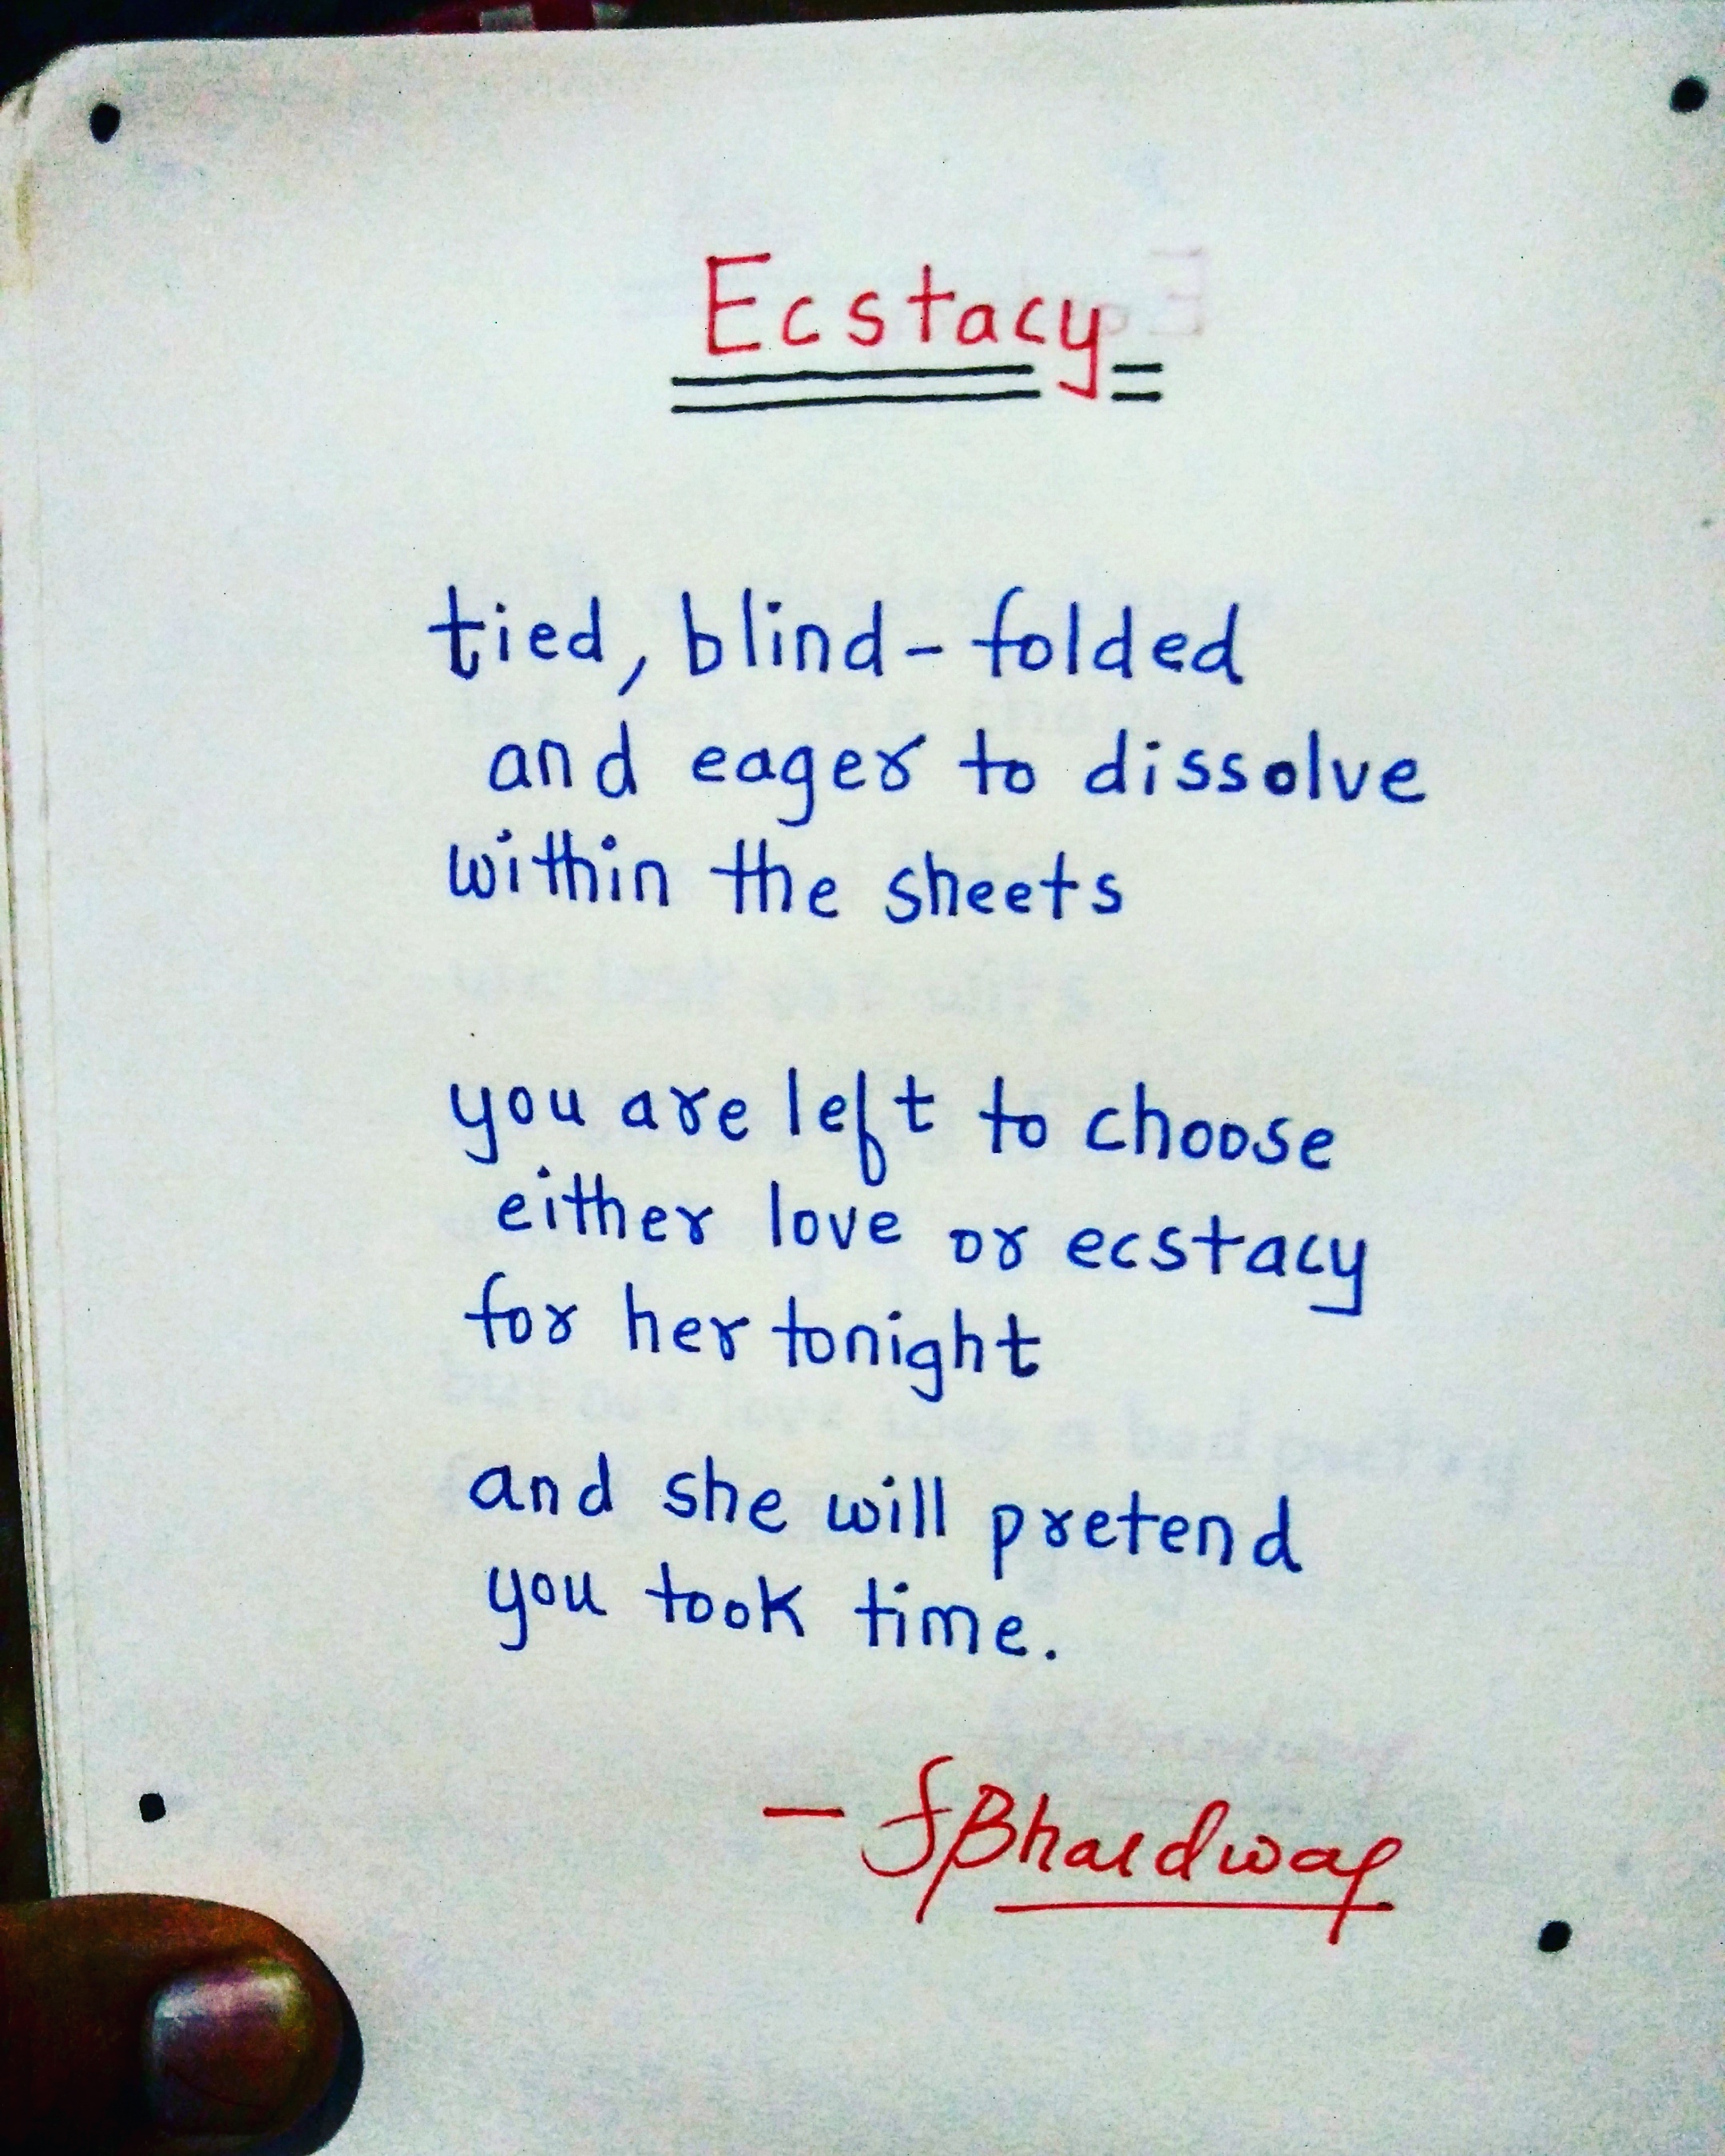 Ecstacy
tied, blind-folded
and eager to dissolve
within the sheets
you are left to choose
either love or ecstacy
for her tonight
and she will pretend
you took time.
- SBhardwaj